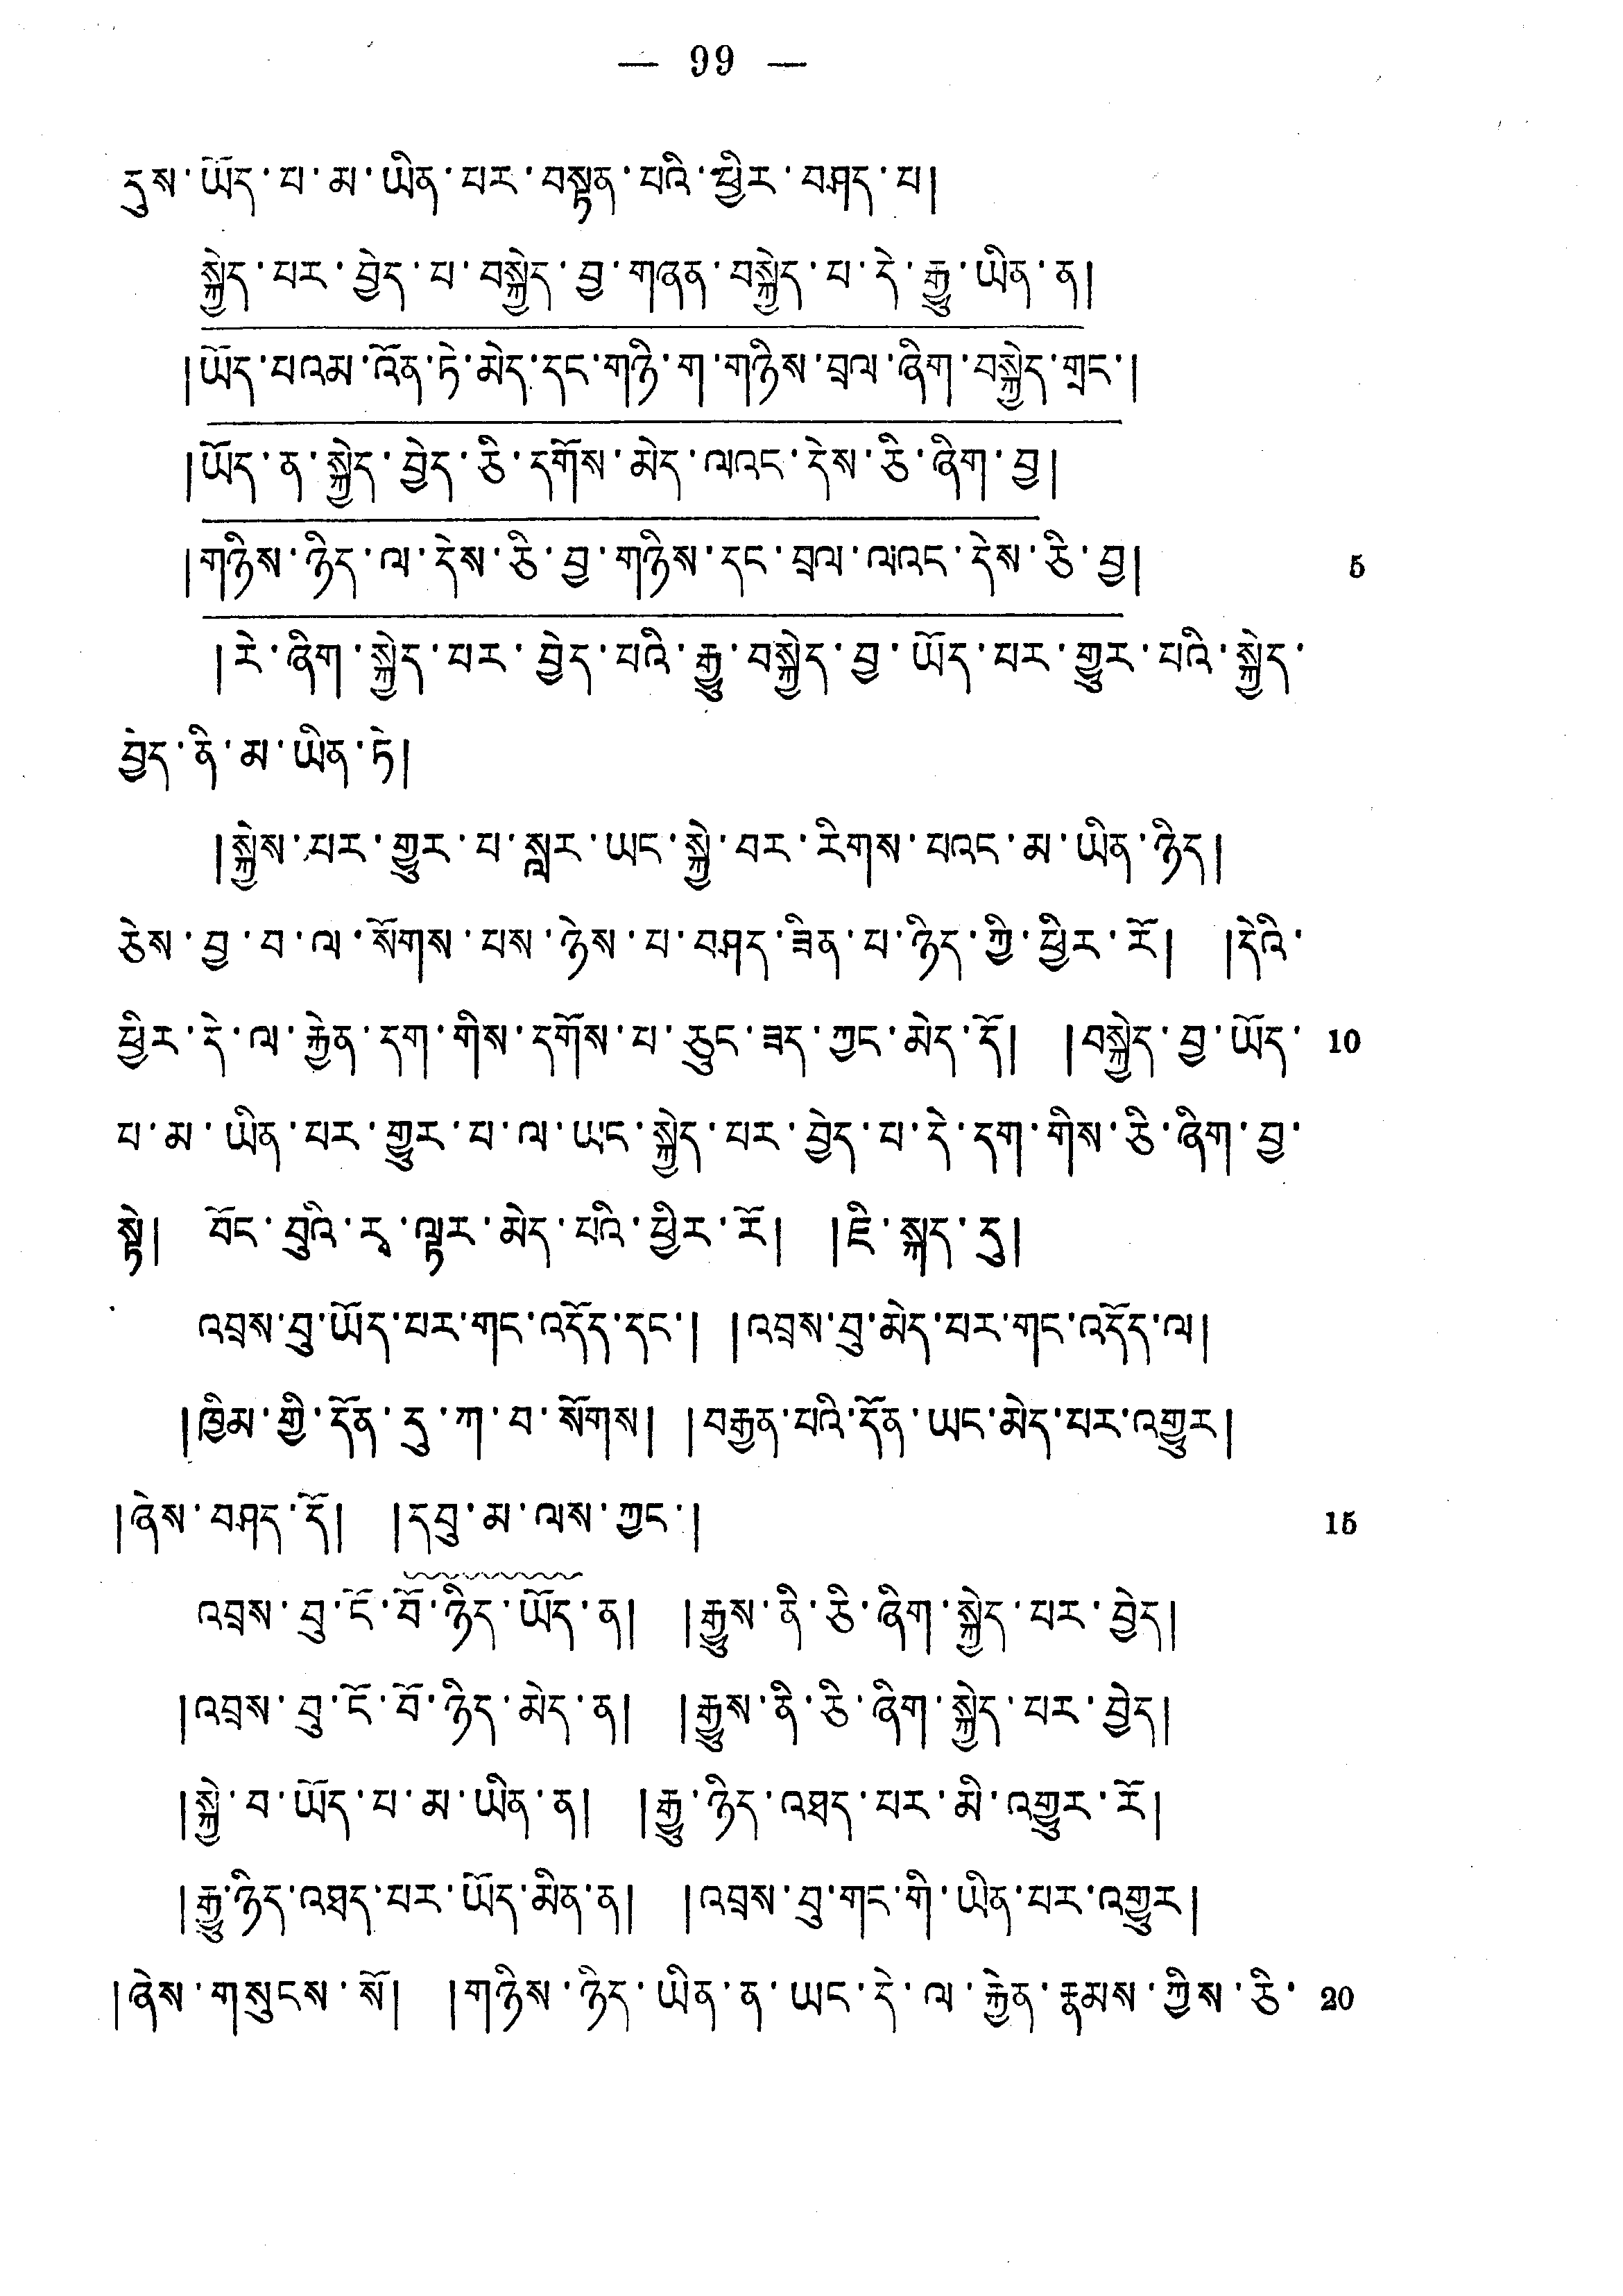 — 99 —
དུས་ཡོད་པ་མ་ཡིན་པར་བསྟན་པའི་ཕྱིར་བཤད་པ།
སྐྱེད་པར་བྱེད་པ་བསྐྱེད་བྱ་གཞན་བསྐྱེད་པ་དེ་རྒྱུ་ཡིན་ན།
།ཡོད་པའམ་འོན་ཏེ་མེད་དང་གཉི་ག་གཉིས་བྲལ་ཞིག་བསྐྱེད་གྲང་།
།ཡོད་ན་སྐྱེད་བྱེད་ཅི་དགོས་མེད་ལའང་དེས་ཅི་ཞིག་བྱ།
།གཉིས་ཉིད་ལ་དེས་ཅི་བྱ་གཉིས་དང་བྲལ་ལའང་དེས་ཅི་བྱ། 5
།རེ་ཞིག་སྐྱེད་པར་བྱེད་པའི་རྒྱུ་བསྐྱེད་བྱ་ཡོད་པར་གྱུར་པའི་སྐྱེད་
བྱེད་ནི་མ་ཡིན་ཏེ།
།སྐྱེས་པར་གྱུར་པ་སླར་ཡང་སྐྱེ་བར་རིགས་པའང་མ་ཡིན་ཉིད།
ཅེས་བྱ་བ་ལ་སོགས་པས་ཉེས་པ་བཤད་ཟིན་པ་ཉིད་ཀྱི་ཕྱིར་རོ། །དེའི་
ཕྱིར་དེ་ལ་རྐྱེན་དག་གིས་དགོས་པ་ཅུང་ཟད་ཀྱང་མེད་དོ། །བསྐྱེད་བྱ་ཡོད་ 10
པ་མ་ཡིན་པར་གྱུར་པ་ལ་ཡང་སྐྱེད་པར་བྱེད་པ་དེ་དག་གིས་ཅི་ཞིག་བྱ་
སྟེ། བོང་བུའི་རྭ་ལྟར་མེད་པའི་ཕྱིར་རོ། །ཇི་སྐད་དུ།
འབྲས་བུ་ཡོད་པར་གང་འདོད་དང་། །འབྲས་བུ་མེད་པར་གང་འདོད་ལ།
།ཁྱིམ་གྱི་དོན་དུ་ཀ་བ་སོགས། །བརྒྱན་པའི་དོན་ཡང་མེད་པར་འགྱུར།
།ཞེས་བཤད་དོ། །དབུ་མ་ལས་ཀྱང་། 15
འབྲས་བུ་ངོ་བོ་ཉིད་ཡོད་ན། །རྒྱུས་ནི་ཅི་ཞིག་སྐྱེད་པར་བྱེད།
།འབྲས་བུ་ངོ་བོ་ཉིད་མེད་ན། །རྒྱུས་ནི་ཅི་ཞིག་སྐྱེད་པར་བྱེད།
།སྐྱེ་བ་ཡོད་པ་མ་ཡིན་ན། །རྒྱུ་ཉིད་འཐད་པར་མི་འགྱུར་རོ།
།རྒྱུ་ཉིད་འཐད་པར་ཡོད་མིན་ན། །འབྲས་བུ་གང་གི་ཡིན་པར་འགྱུར།
།ཞེས་གསུངས་སོ། །གཉིས་ཉིད་ཡིན་ན་ཡང་དེ་ལ་རྐྱེན་རྣམས་ཀྱིས་ཅི་ 20